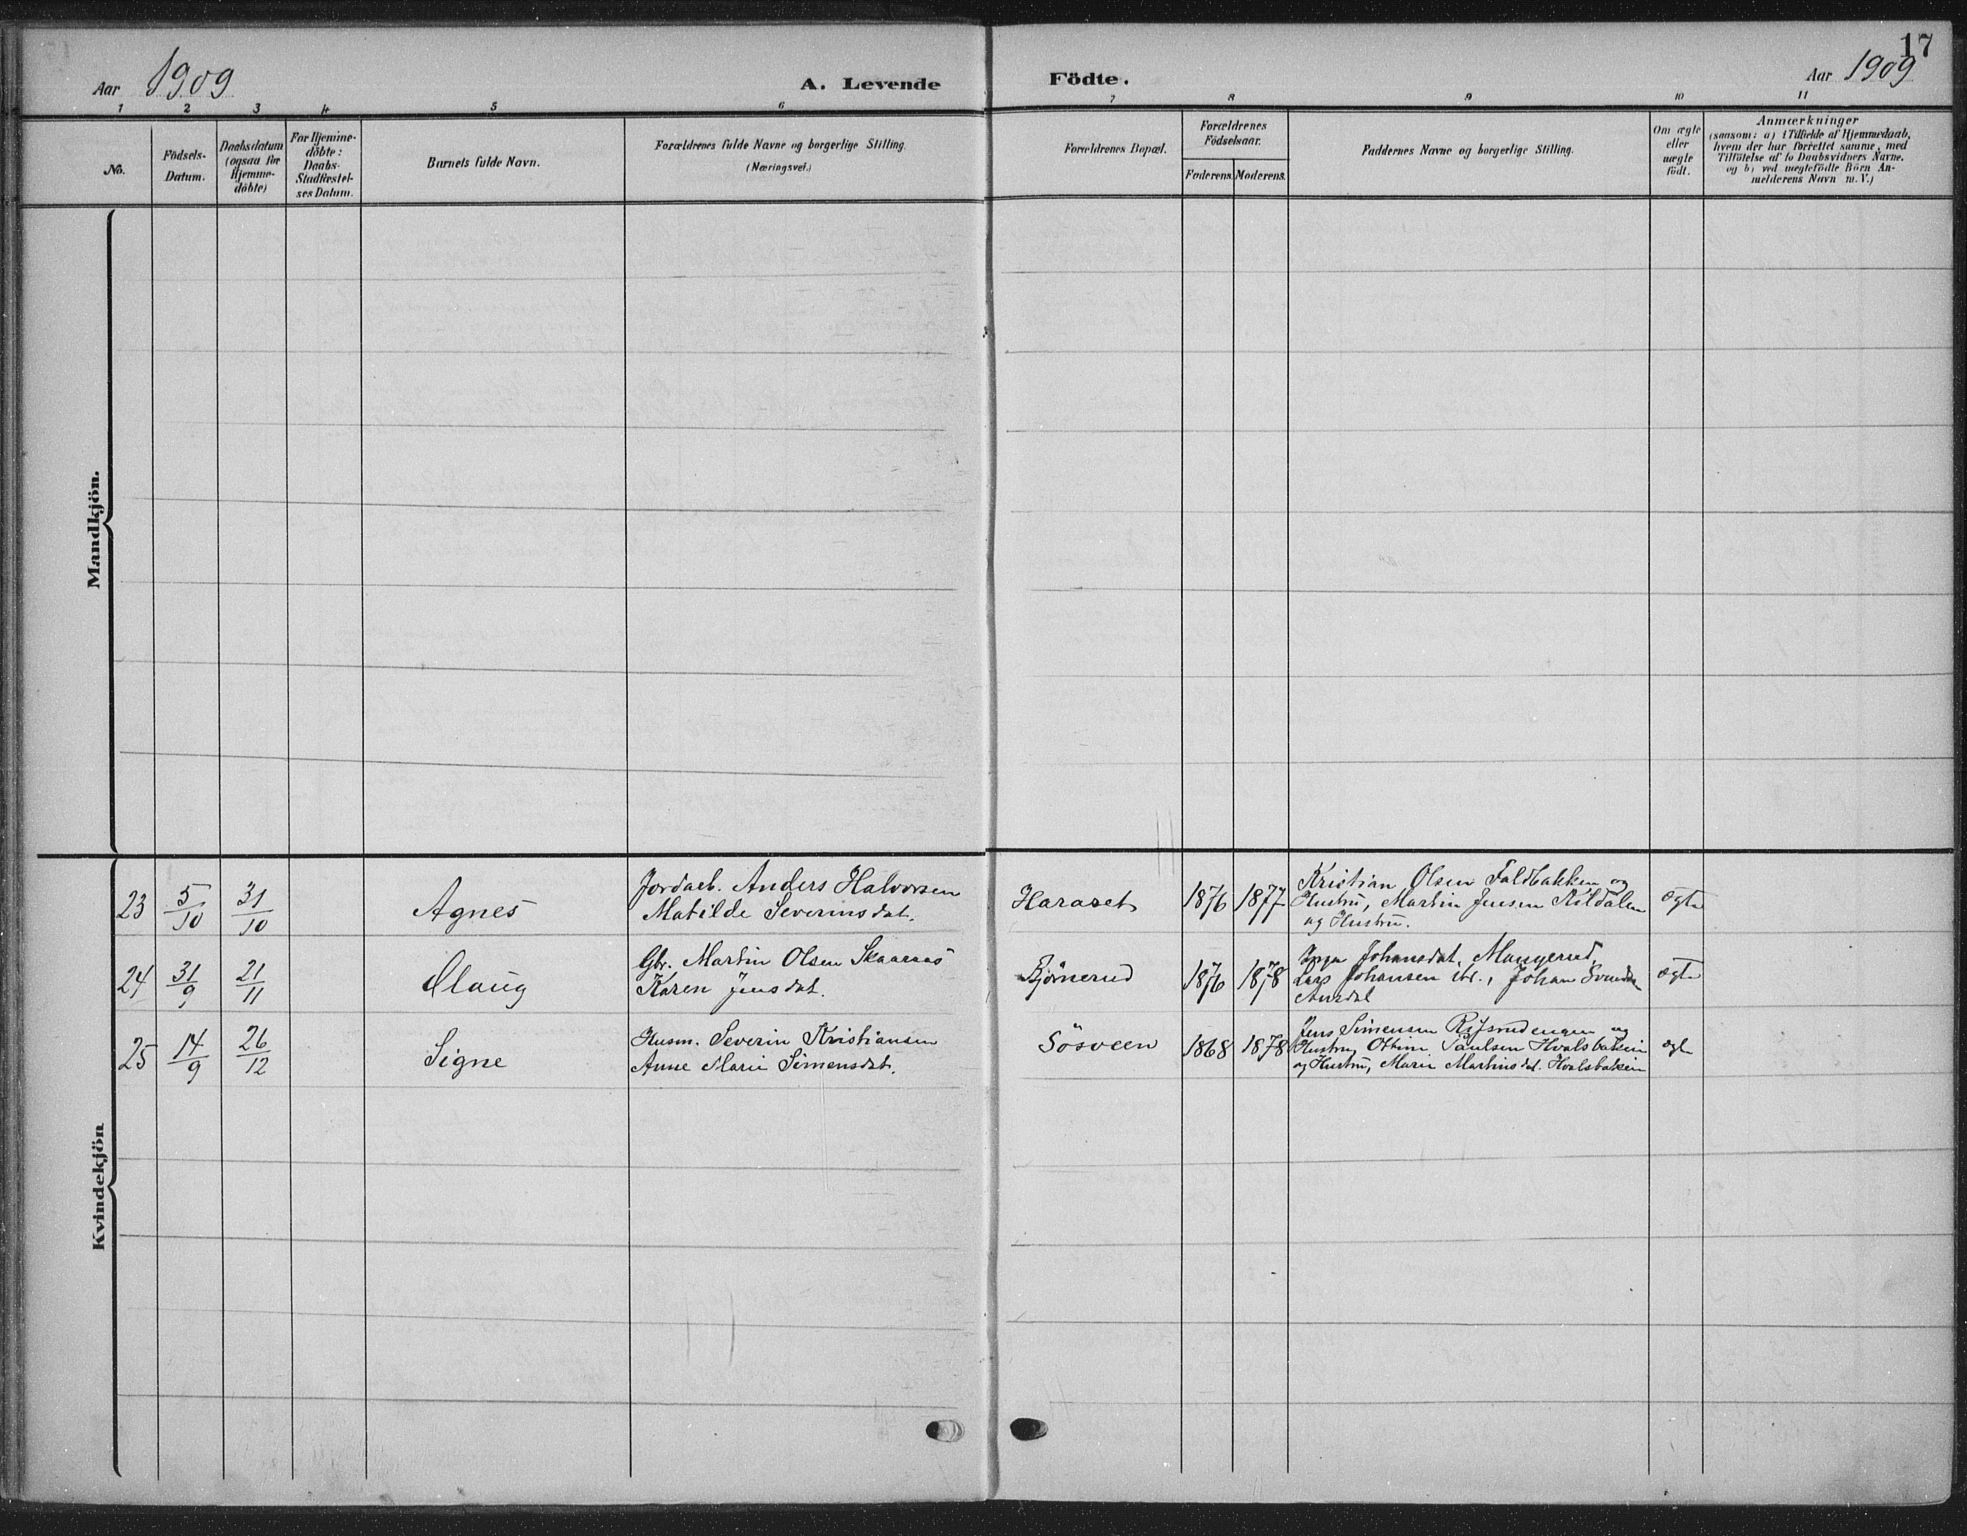 17
Aar 1909
A. Levende
Födte.
Aar 1909
1 2 3 4 5 6 7 8 9 10 11
No.
Födsels-
Datum.
Daabsdatum
(ogsaa for
Hjemme-
döbte)
For Hjemme-
döbte:
Daabs-
Stadfæstel-
ses Datum.
Barnets fulde Navn.
Forældrenes fulde Navne og borgerlige Stilling.
(Næringsvei.)
Forældrenes Bopæl.
Forældrenes
Födselsaar.
Faderens. Moderens.
Faddernes Navne og borgerlige Stilling.
Om ægte
eller
uægte
født.
Anmærkninger
(saasom: a) i Tilfælde af Hjemmedaab,
hvem der har forrettet samme, med
Tilföielse af to Daabsvidners Navne.
og b) ved uægtefödte Börn An-
melderens Navn m. V.)
Mandkjön.
Kvindekjön
23 5/10 31/10 Agnes
Jordarb. Anders Halvorsen
Matilde Severinsdat.
Haraset 1876 1877
Kristian Olsen Faldbakken og
Hustru, Martin Jensen Kildalen
og Hustru.
ægte
24 31/9 21/11 Olaug
Gbr. Martin Olsen Skaaraas
Karen Jensdat.
Bjørnerud 1876 1878
Johansdat. Mangerud,
Lars Johansen ibd., Johan
ægte
25 14/9 26/12 Signe
Husm. Severin Kristiansen
Anne Marie Simensdat.
Søsveen 1868 1878
Jens Simensen og
Hustru, Paulsen Hvalsbakken
og Hustru, Marie Martinsdat. Hvalsbakken
ægte